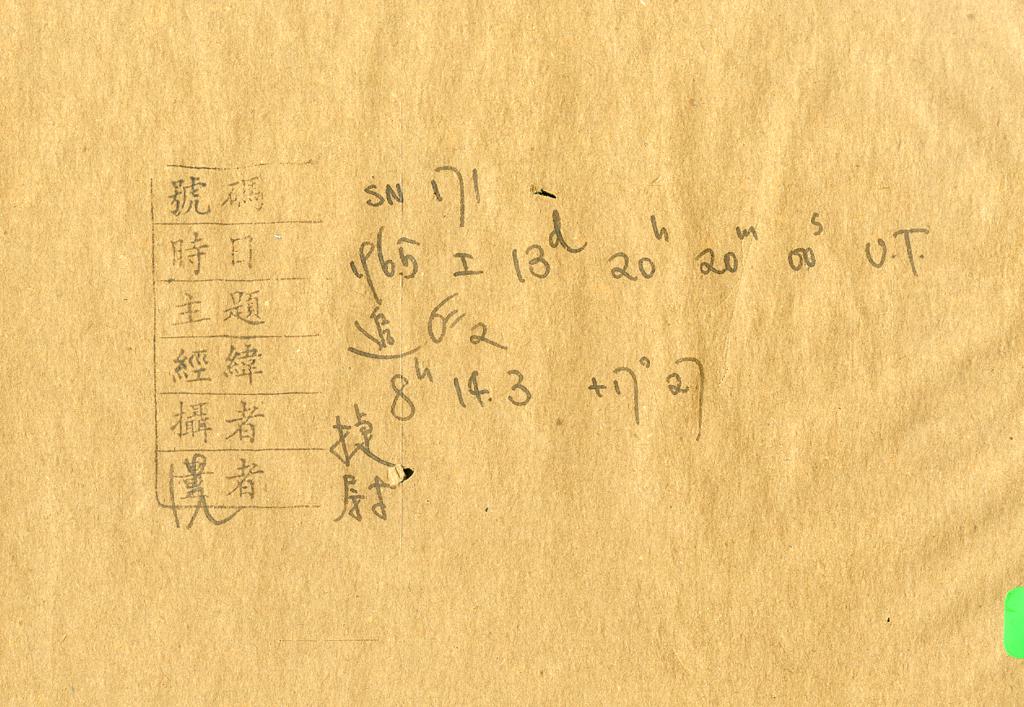 號碼 SN 171
時日 1965 I 13d 20h 20m 00s U.T.
主題 追 E2
經緯 8h 14.3 +17° 27
攝者 捷
者 尉